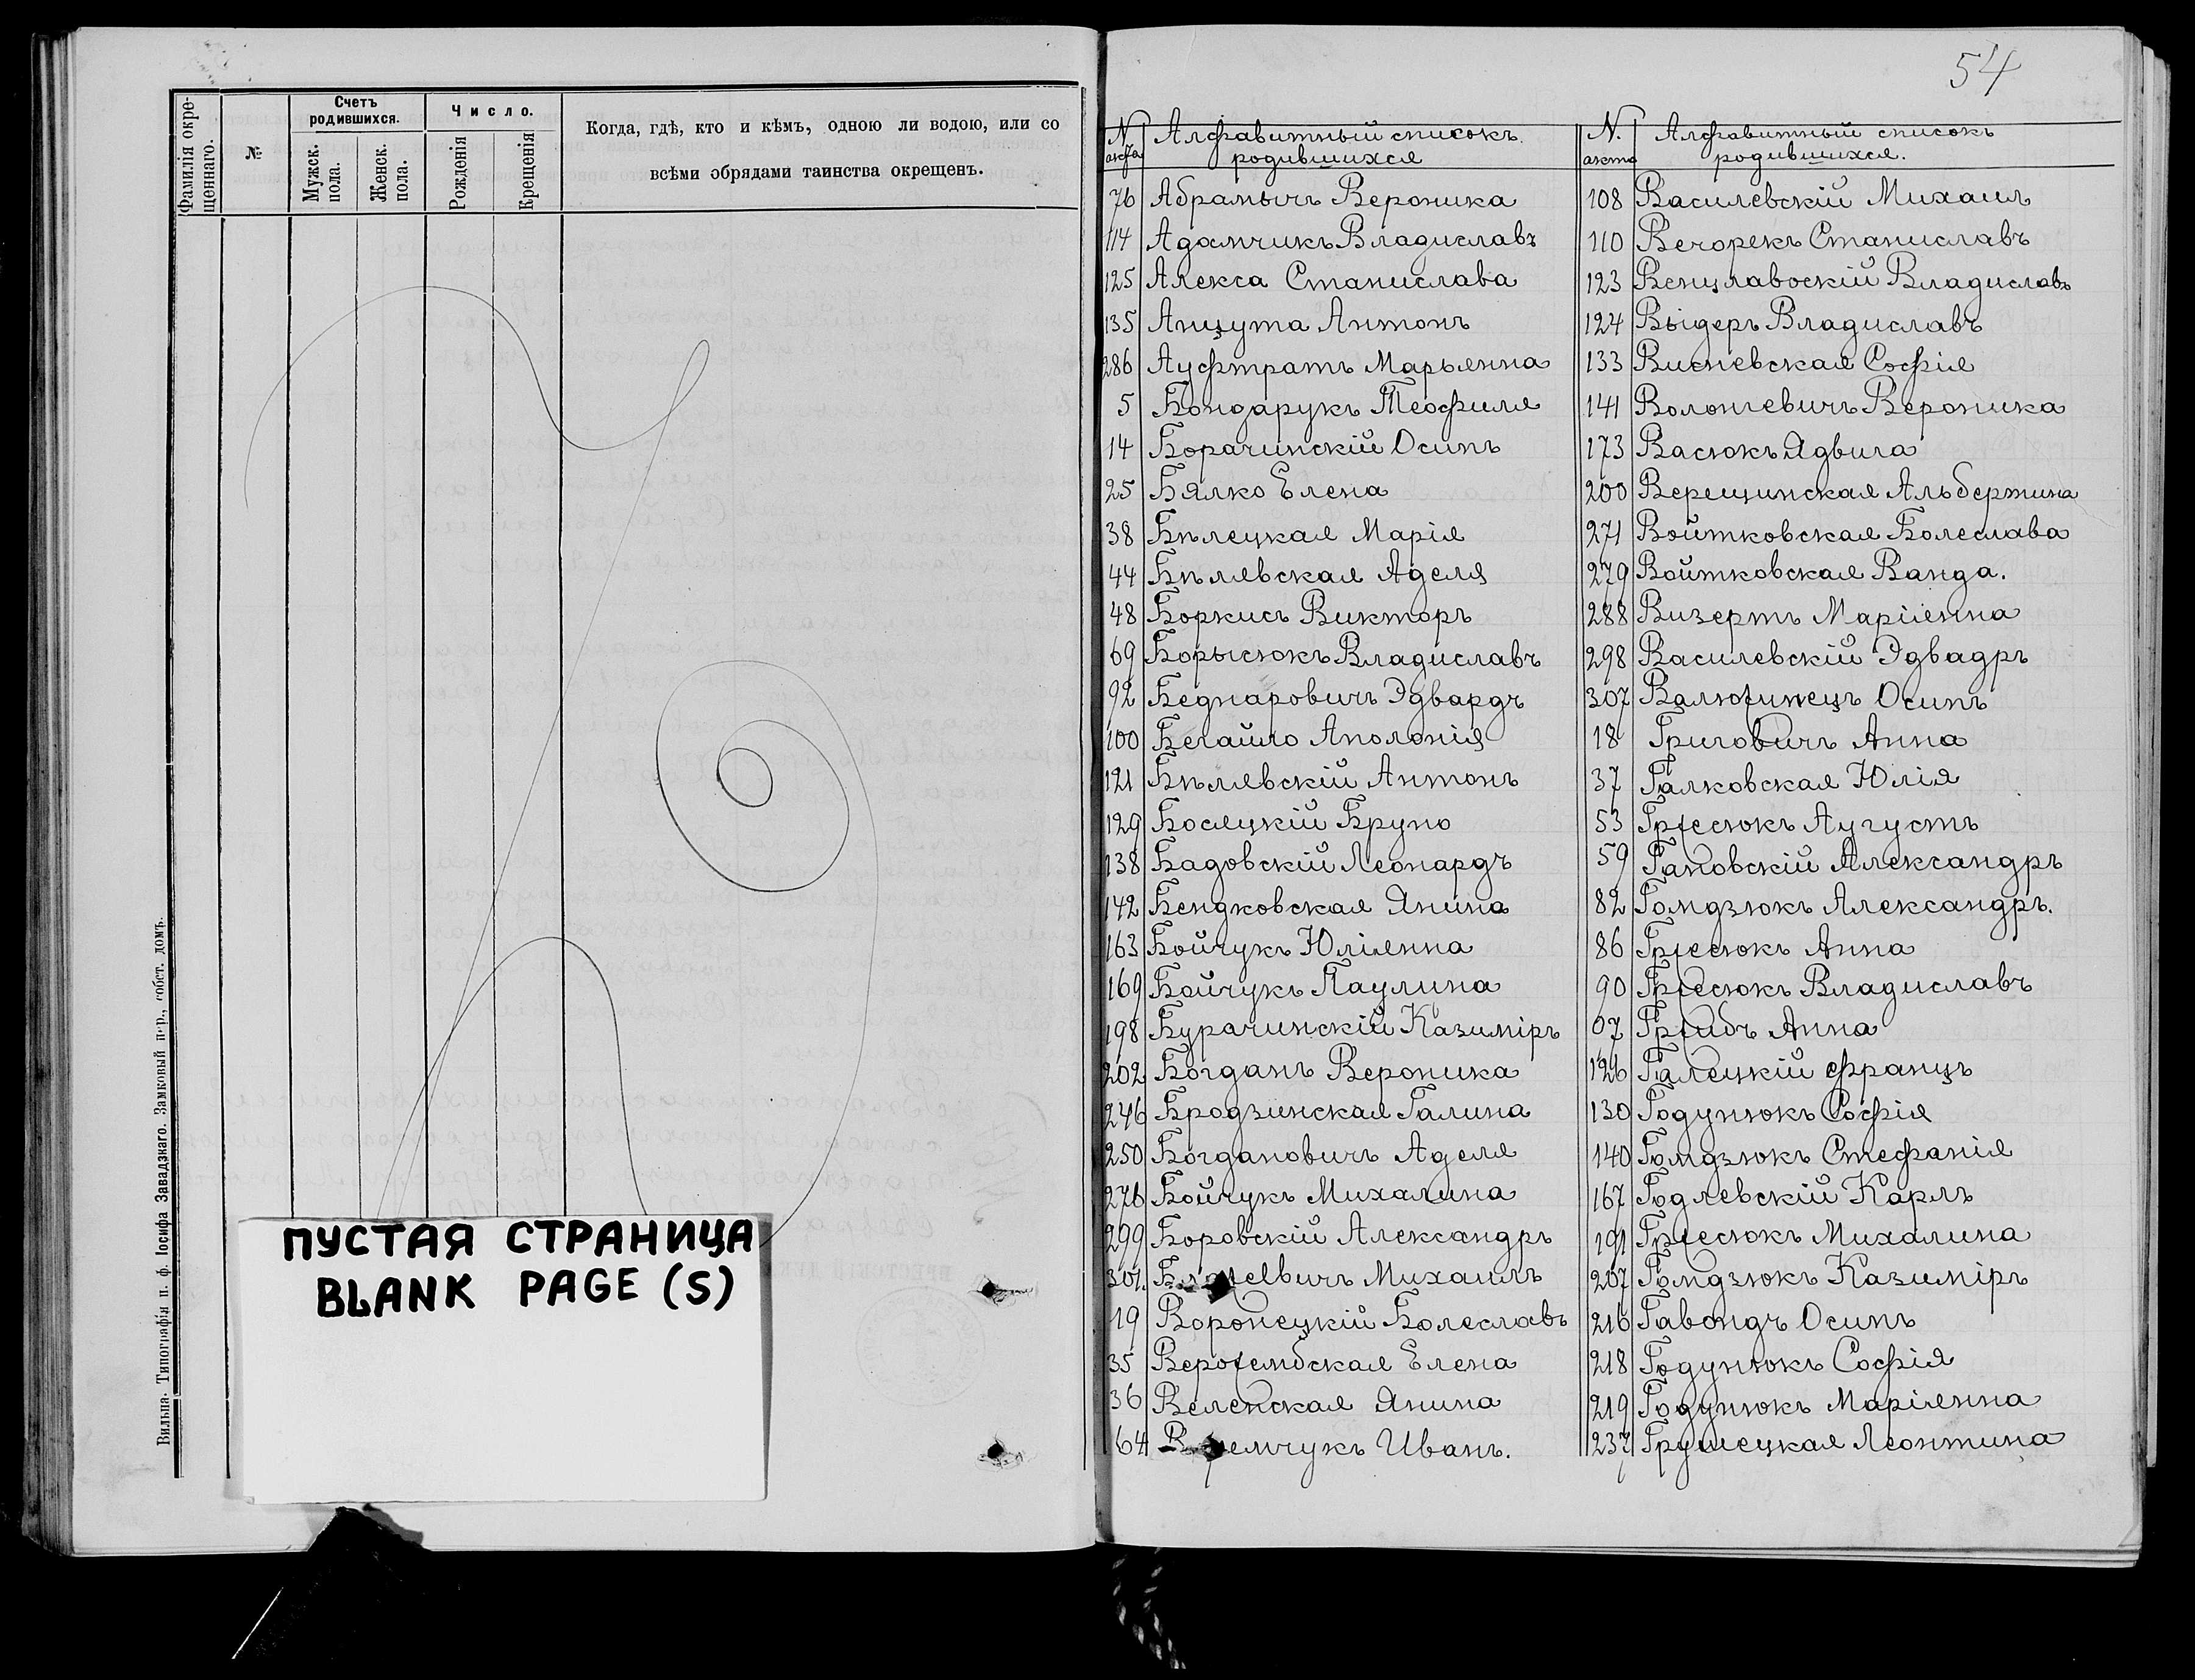 Фамилія окре-
щеннаго.
№
Счетъ
родившихся.
Мужск.
пола.
Женск.
пола.
Число.
Рожденія
Крещенія
Когда, гдѣ, кто и кѣмъ, одною ли водою, или со
всѣми обрядами таинства окрещенъ.
Вильна. Типографія п. ф. Іосифа Завадзкаго. Замковый пер., собст. домъ.
ПУСТАЯ СТРАНИЦА
BLANK PAGE (S)
54
N акта Алфавитный списокъ
родившихся
76 Абрамычъ Вероника
114 Адамчикъ Владиславъ
125 Алекса Станислава
135 Анцута Антонъ
286 Ауфтратъ Марьянна
5 Бондарукъ Теофиля
14 Борачинскій Осипъ
25 Бялко Елена
38 Бѣлецкая Марія
44 Бѣлявская Аделя
48 Боркисъ Викторъ
69 Борысюкъ Владиславъ
92 Беднаровичъ Эдвардъ
100 Бегайло Аполонія
121 Бѣлявскій Антонъ
129 Босяцкій Бруно
138 Бадовскій Леонардъ
142 Бендковская Янина
163 Бойчукъ Юліянна
169 Бойчукъ Паулина
198 Бурачинскій Казиміръ
202 Богданъ Вероника
246 Бродзинская Галина
250 Богдановичъ Аделя
276 Бойчукъ Михалина
299 Боровскій Александръ
301 Михаилъ
19 Воронецкій Болеславъ
35 Елена
36 Янина
64 Иванъ.
N. акта Алфавитный списокъ
родившихся.
108 Василевскій Михаилъ
110 Вечорекъ Станиславъ
123 Венцлавоскій Владиславъ
124 Выдеръ Владиславъ
133 Висневская Софія
141 Вероника
173 Васюкъ Ядвига
200 Верещинская Альбертина
271 Войтковская Болеслава
279 Войтковская Ванда.
288 Визертъ Маріенна
298 Василевскій Эдвадръ
307 Валюжинецъ Осипъ
18 Григовичъ Анна
37 Галковская Юлія
53 Гржесюкъ Аугустъ
59 Гановскій Александръ
82 Гомдзюкъ Александръ.
86 Гржесюкъ Анна
90 Гржесюкъ Владиславъ
07 Гржибъ Анна
126 Галецкій Францъ
130 Годунюкъ Софія
140 Гомдзюкъ Стефанія
167 Годлевскій Карлъ
191 Гржесюкъ Михалина
207 Гомдзюкъ Казиміръ
216 Гавондъ Осипъ
218 Годунюкъ Софія
219 Годунюкъ Маріянна
237 Грушецкая Леонтина